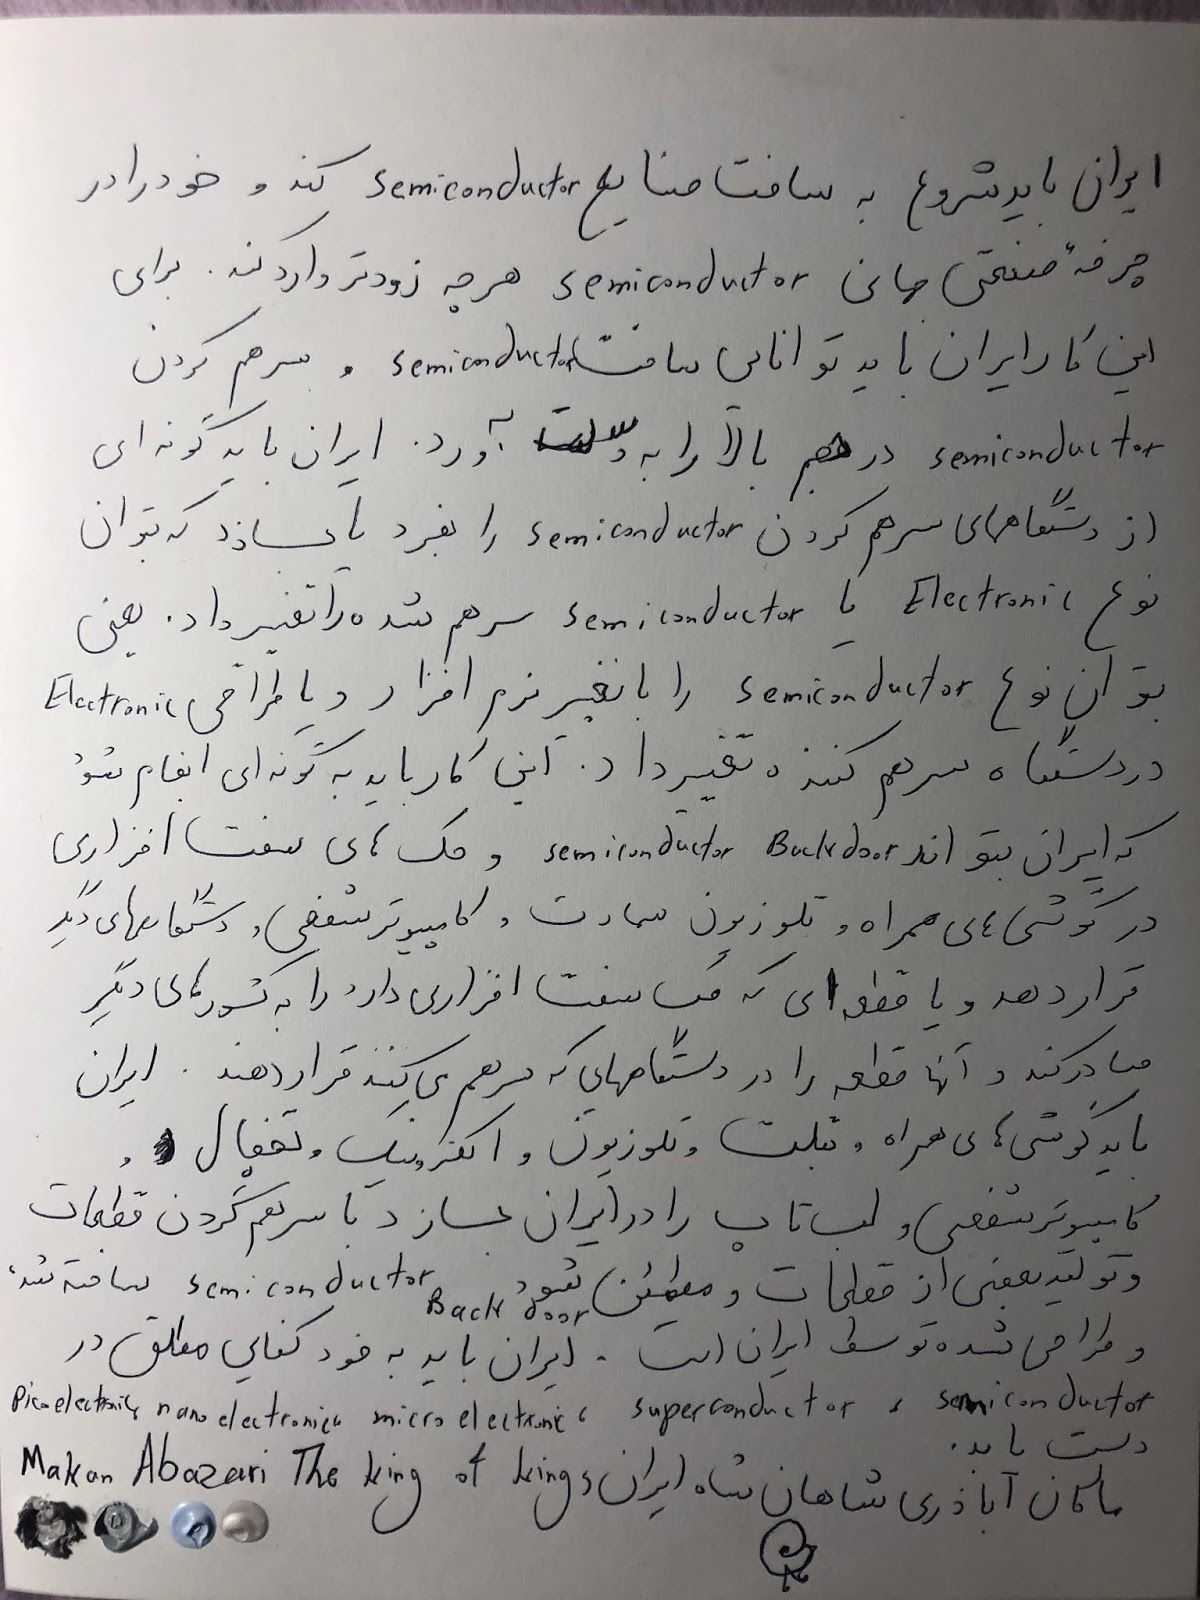 ایران باید شروع به ساخت صنایع semiconductor کند و خود را در
چرخهٔ صنعتی جهانی semiconductor هر چه زودتر وارد کند. برای
این کار ایران باید توانایی ساخت semiconductor و سرهم کردن
semiconductor در حجم بالا را به دست آورد. ایران باید گونه ای
از دستگاههای سرهم کردن semiconductor را بخرد یا بسازد که بتوان
نوع Electronic یا semiconductor سرهم شده را تغییر داد. یعنی
بتوان نوع semiconductor را با تغییر نرم افزار و یا طراحی Electronic
در دستگاه سرهم کننده تغییر داد. این کار باید به گونه ای انجام شود
که ایران بتواند semiconductor Backdoor و هک های سخت افزاری
در گوشی های همراه و تلوزیون سمارت و کامپیوتر شخصی و دستگاههای دیگر
قرار دهد و یا قطعه ای که هک سخت افزاری دارد را به کشورهای دیگر
صادر کند و آنها قطعه را در دستگاههای که سرهم می کنند قرار دهند. ایران
باید گوشی های همراه و تبلت و تلوزیون و الکترونیک و یخچال و
کامپیوتر شخصی و لب تاپ را در ایران بسازد با سرهم کردن قطعات
و تولید بعضی از قطعات و مطمئن شود semiconductor Back door ساخته شده
و طراحی شده توسط ایران است. ایران باید به خود کفایی مطلق در
semiconductor و superconductor micro electronic nano electronics Picoelectronics
دست یابد.
ماکان آباذری شاهان شاه ایران Makan Abazari The king of kings